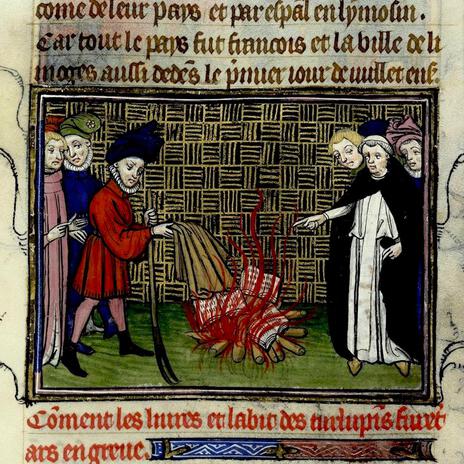 come de leur pays et par espāl en lymosin.
Car tout le pays fut francois et la ville de li
moges aussi dedēs le p̄mier iour de iuillet ens.
Cōment les liures et labit des turlupīs furēt
ars en greue.